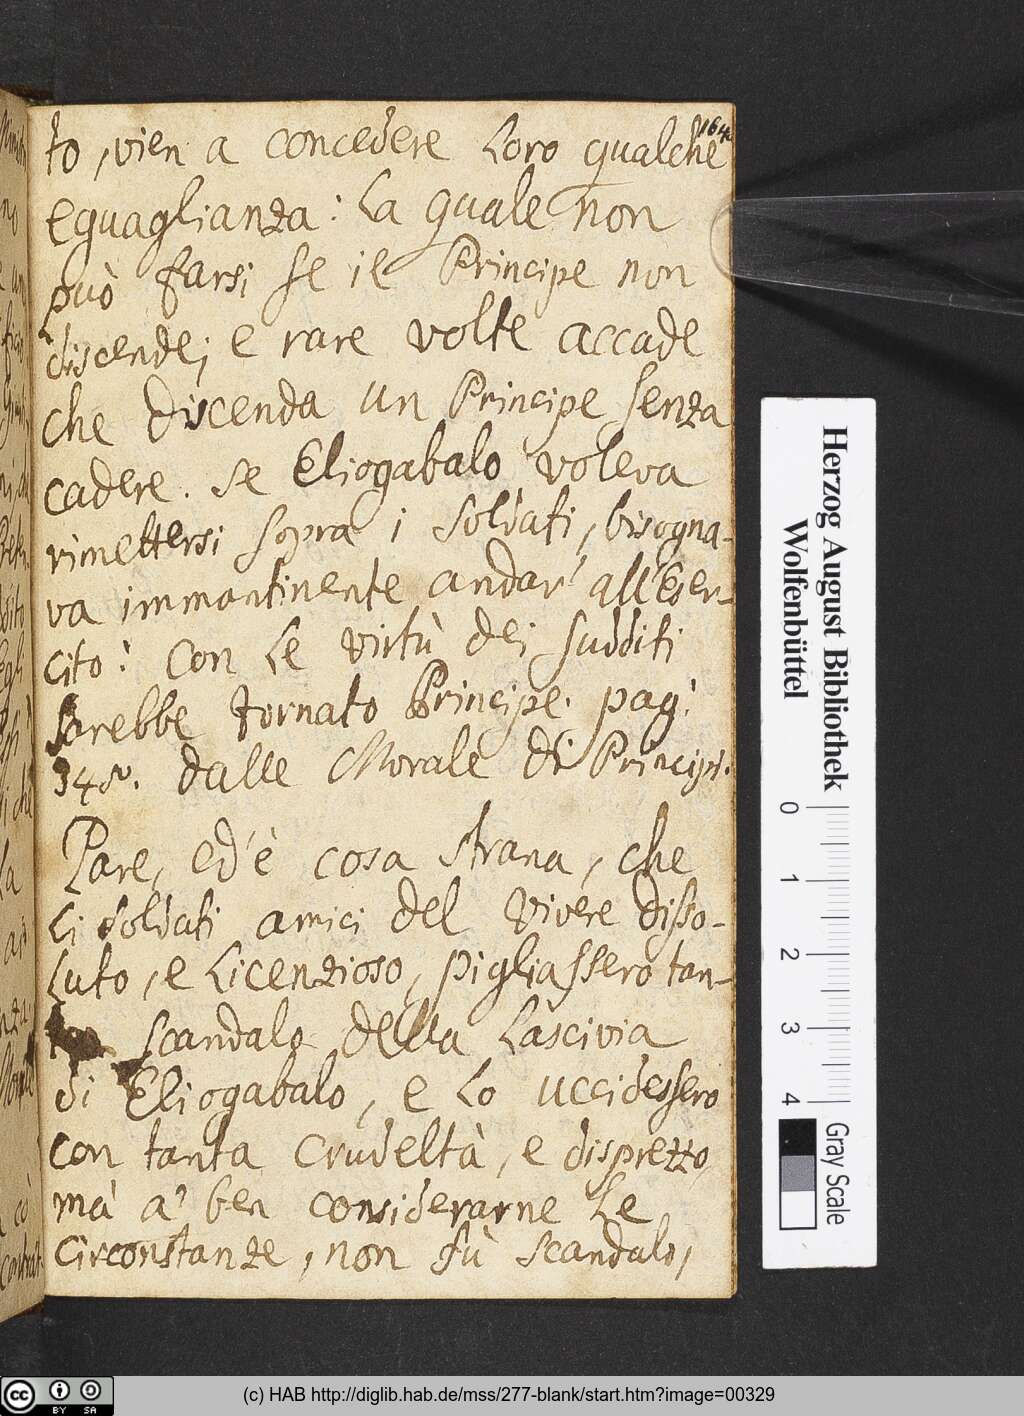 164
to, vien a concedere loro qualche
eguaglianza: la quale non
può farsi se il Principe non
discende; e rare volte accade
che discenda un Principe senza
cadere. se Eliogabalo voleva
rimettersi sopra i soldati, bisogna-
va immantinente andar' all'Eser-
cito: con le virtù dei sudditi
sarebbe tornato Principe. pag:
348. dalle Morale di Principi.
Pare, ed' è cosa strana, che
li soldati amici del vivere disso-
luto, e licenzioso, pigliassero tan-
scandalo della lascivia
di Eliogabalo, e lo uccidessero
con tanta crudeltà, e disprezzo,
mà a' ben considerarne le
circonstanze, non fù scandalo,
Herzog August Bibliothek
Wolfenbüttel
0 1 2 3 4
Gray Scale
cc BY SA
(c) HAB http://diglib.hab.de/mss/277-blank/start.htm?image=00329